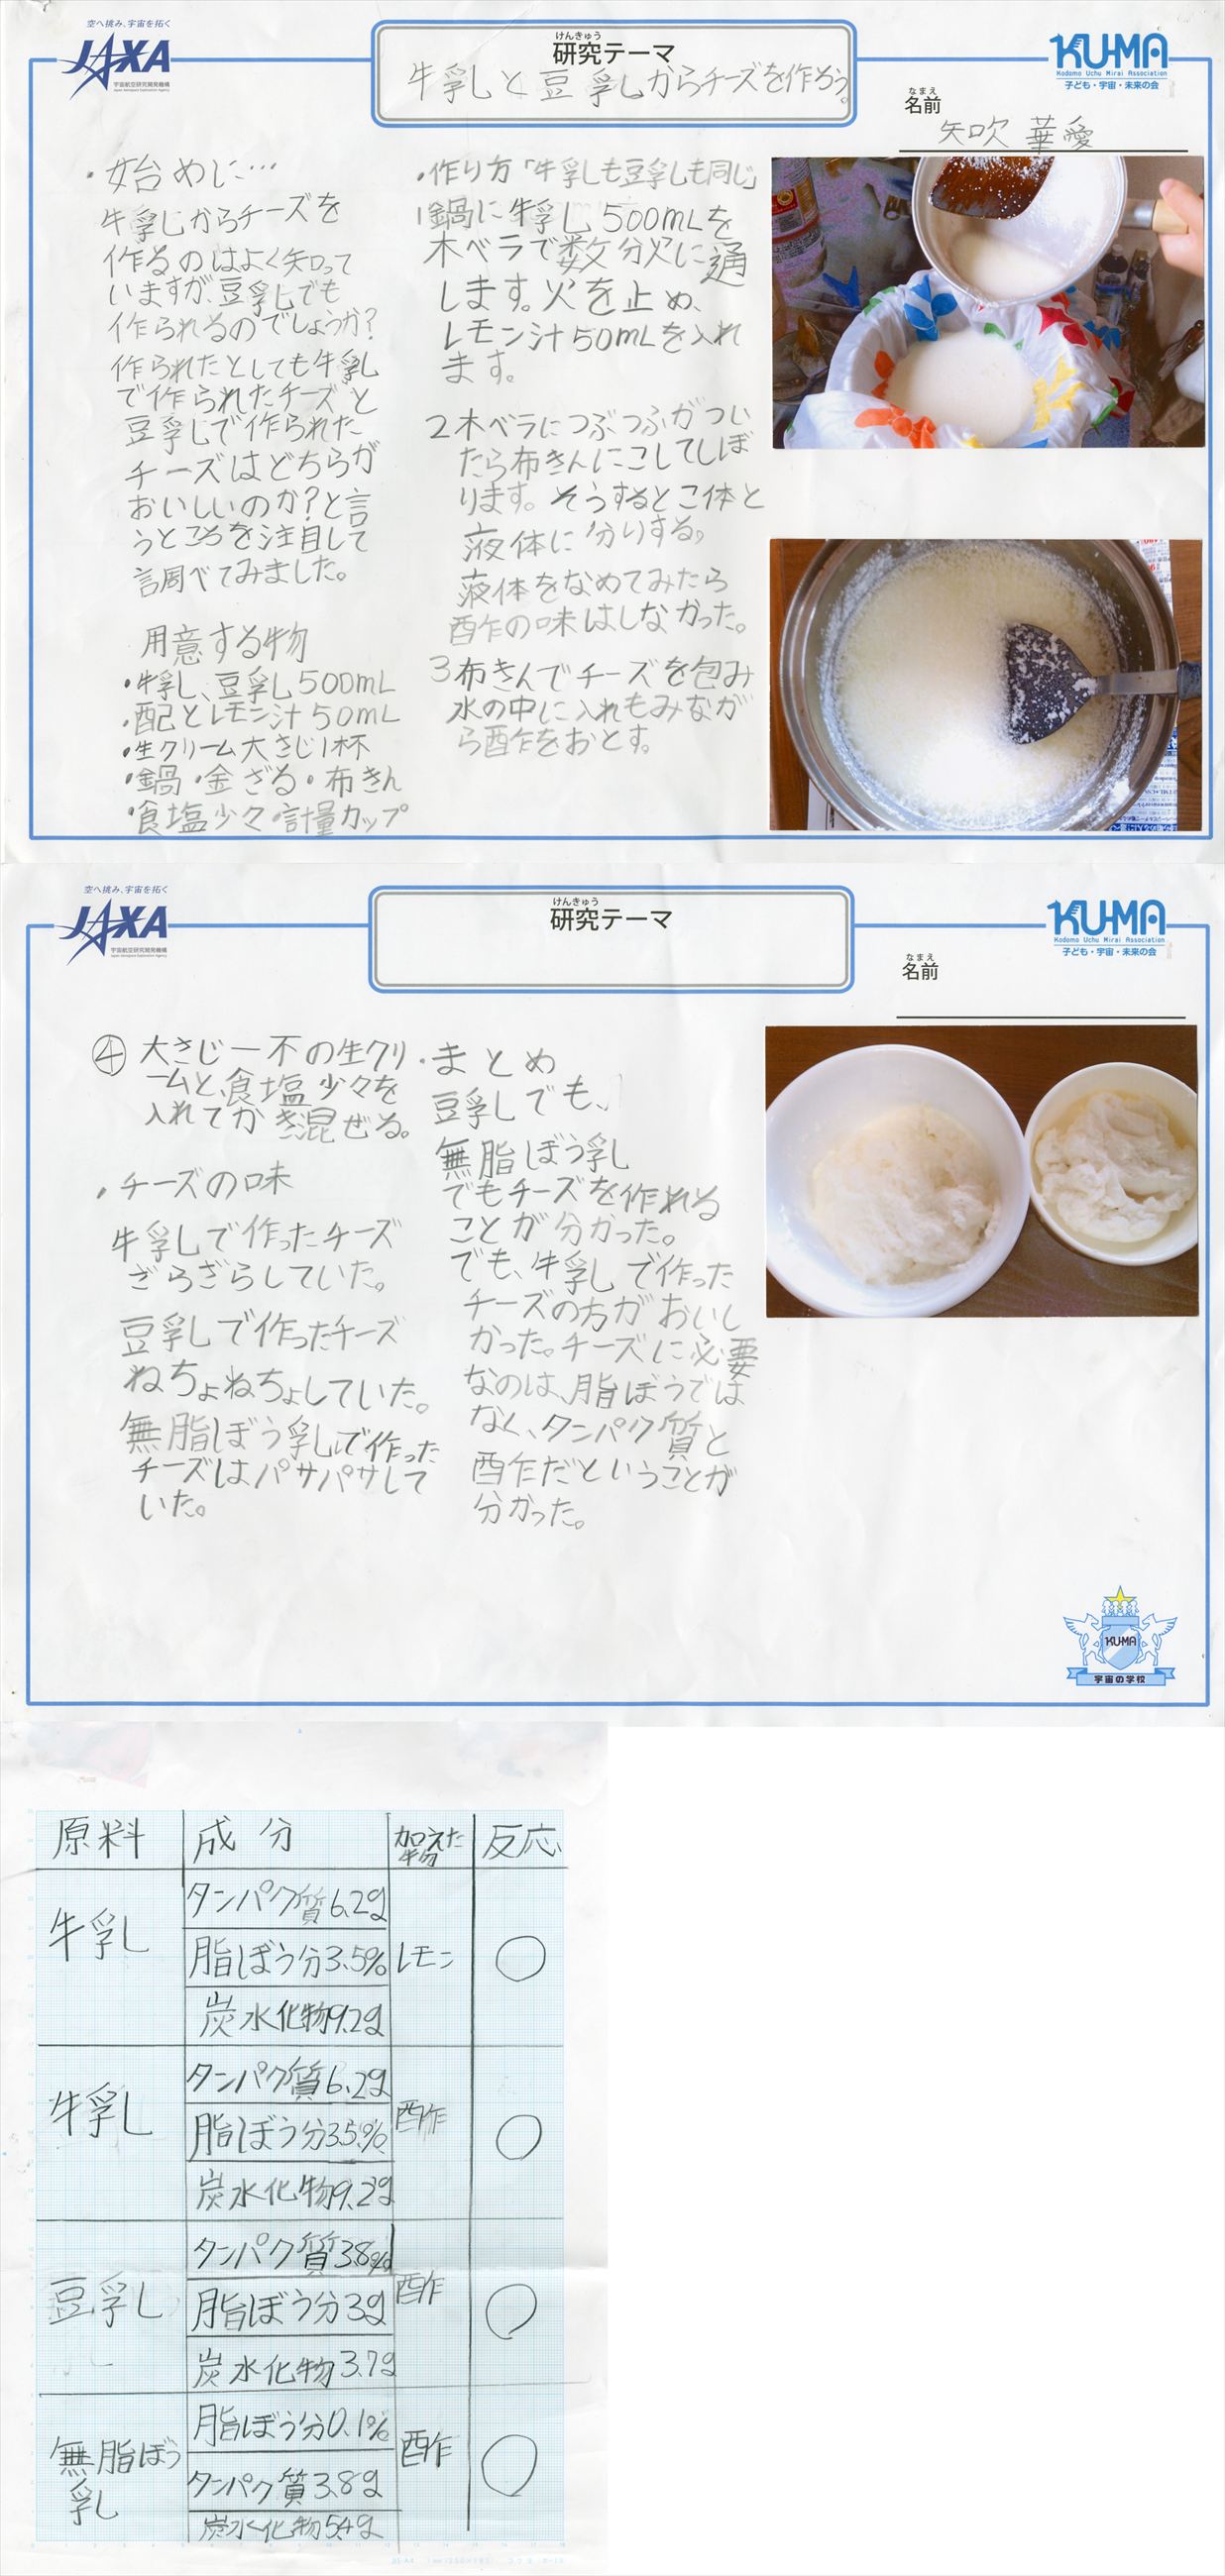 空へ挑み、宇宙を拓く
JAXA
宇宙航空研究開発機構
Japan Aerospace Exploration Agency
けんきゅう
研究テーマ
牛乳と豆乳からチーズを作ろう。
KU-MA
Kodomo Uchu Mirai Association
子ども・宇宙・未来の会
なまえ
名前
矢吹 華愛
・始めに…
牛乳からチーズを
作るのはよく知って
いますが、豆乳でも
作られるのでしょうか?
作られたとしても牛乳
で作られたチーズと
豆乳で作られた
チーズはどちらが
おいしいのか?と言
うところを注目して
調べてみました。
用意する物
・牛乳、豆乳500mL
・酢とレモン汁50mL
・生クリーム大さじ1杯
・鍋・金ざる・布きん
・食塩少々・計量カップ
・作り方「牛乳も豆乳も同じ」
1鍋に牛乳500mLを
木ベラで数分火に通
します。火を止め、
レモン汁50mLを入れ
ます。
2木ベラにつぶつぶがつい
たら布きんにこしてしぼ
ります。そうするとこ体と
液体に分りする。
液体をなめてみたら
酢の味はしなかった。
3布きんでチーズを包み
水の中に入れもみなが
ら酢をおとす。
空へ挑み、宇宙を拓く
JAXA
宇宙航空研究開発機構
Japan Aerospace Exploration Agency
けんきゅう
研究テーマ
KU-MA
Kodomo Uchu Mirai Association
子ども・宇宙・未来の会
なまえ
名前
④大さじ一不の生クリ
ームと、食塩少々を
入れてかき混ぜる。
・チーズの味
牛乳で作ったチーズ
ざらざらしていた。
豆乳で作ったチーズ
ねちょねちょしていた。
無脂ぼう乳で作った
チーズはパサパサして
いた。
・まとめ
豆乳でも、
無脂ぼう乳
でもチーズを作れる
ことが分かった。
でも、牛乳で作った
チーズの方がおいし
かった。チーズに必要
なのは、脂ぼうでは
なく、タンパク質と
酢だということが
分かった。
KU-MA
宇宙の学校
原料 成分 加えた物 反応
牛乳 タンパク質6.2g
脂ぼう分3.5% レモン ○
炭水化物9.2g
牛乳 タンパク質6.2g
脂ぼう分3.5% 酢 ○
炭水化物9.2g
豆乳 タンパク質3.8%
脂ぼう分3g 酢 ○
炭水化物3.7g
無脂ぼう乳 脂ぼう分0.1%
タンパク質3.8g 酢 ○
炭水化物5.4g